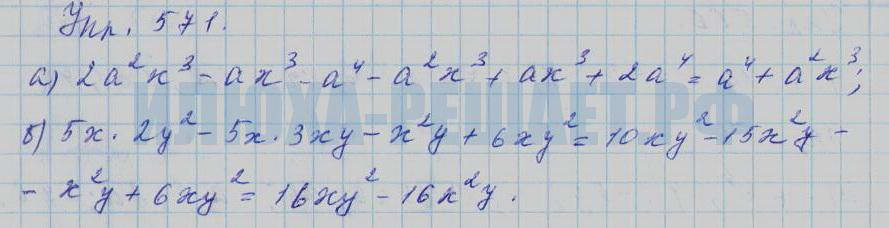 Упр. 571.
а) 2a²x³ - ax³ - a⁴ - a²x³ + ax³ + 2a⁴ = a⁴ + a²x³;
б) 5x · 2y² - 5x · 3xy - x²y + 6xy² = 10xy² - 15x²y -
- x²y + 6xy² = 16xy² - 16x²y.
ИЛЮХА-РЕШАЕТ.РФ